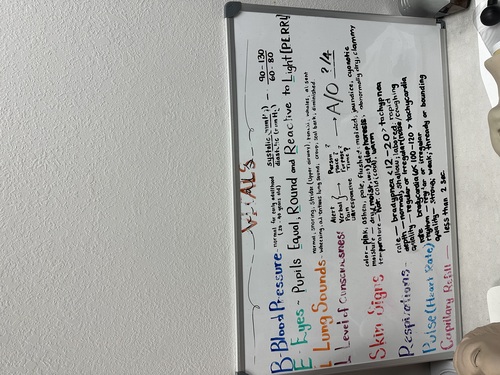 VITALS
B - Blood Pressure - normal for early adulthood (20-40 years old) systolic (mmHg) / diastolic (mmHg) - 90-130 / 60-80
E - Eyes - Pupils Equal, Round and Reactive to Light [PERRL]
L Lung Sounds - normal, snoring, stridor (upper airway), wheezes, absent
L Level of Consciousness! Alert Verbal Pain unresponsive } Person ? Place ? Purpose ? Time ? } → A/O ?/4
Skin Signs
color - pink, ashen, pale, flushed, molded, jaundice, cyanotic
moisture - dry (moist, wet) diaphoresis: abnormally dry; clammy
temperature - hot, cold (cool), warm
Respirations -
rate - bradypnea < 12-20 > tachypnea
depth - normal, shallow, labored, rapid
quality - regular or irregular (noise/coughing
Pulse (Heart Rate)
rate - bradycardia 60 < 100-120 > tachycardia
rhythm - regular or irregular
quality - strong, weak, thready or bounding
Capillary Refill - less than 2 sec.